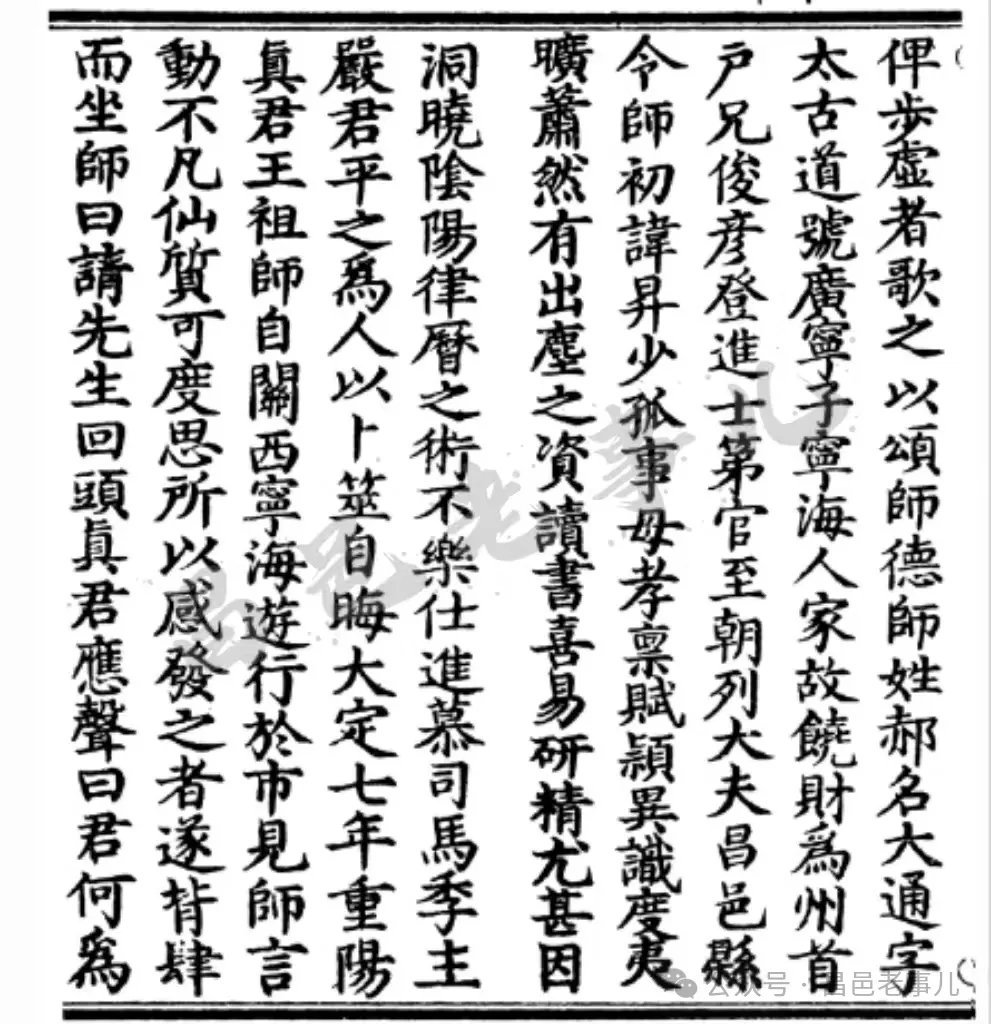 俾步虛者歌之以頌師德師姓郝名大通字
太古道號廣寧子寧海人家故饒財為州首
戶兄俊彥登進士第官至朝列大夫昌邑縣
令師初諱昇少孤事母孝稟賦穎異識度夷
曠蕭然有出塵之資讀書喜易研精尤甚因
洞曉陰陽律曆之術不樂仕進慕司馬季主
嚴君平之為人以卜筮自晦大定七年重陽
真君王祖師自關西寧海遊行於市見師言
動不凡仙質可度思所以感發之者遂背肆
而坐師曰請先生回頭真君應聲曰君何為
昌邑老事儿
公众号·昌邑老事儿